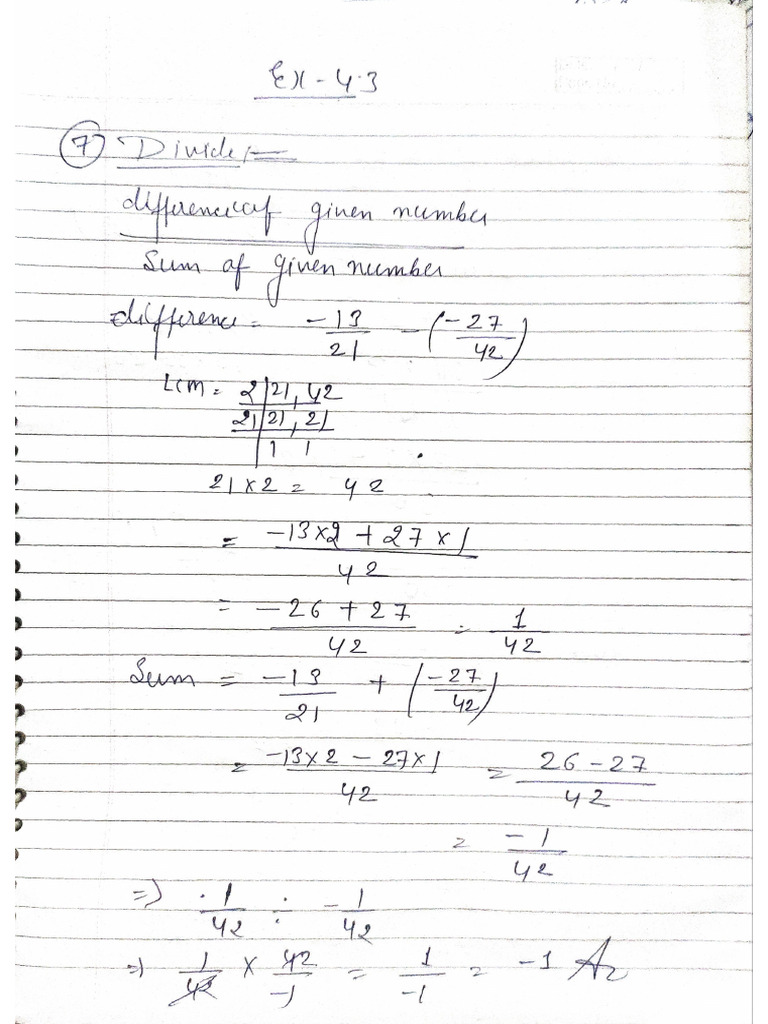 Ex - 4.3
7 Divide :-
difference of given number
Sum of given number
difference = -13/21 - (-27/42)
Lcm = 2 | 21, 42
21 | 21, 21
| 1 1
21 x 2 = 42
= -13x2 + 27 x 1 / 42
= -26 + 27 / 42 = 1/42
Sum = -13/21 + (-27/42)
= -13x2 - 27x1 / 42 = 26 - 27 / 42
= -1/42
=> .1/42 ÷ -1/42
=> 1/42 x 42/-1 = 1/-1 = -1